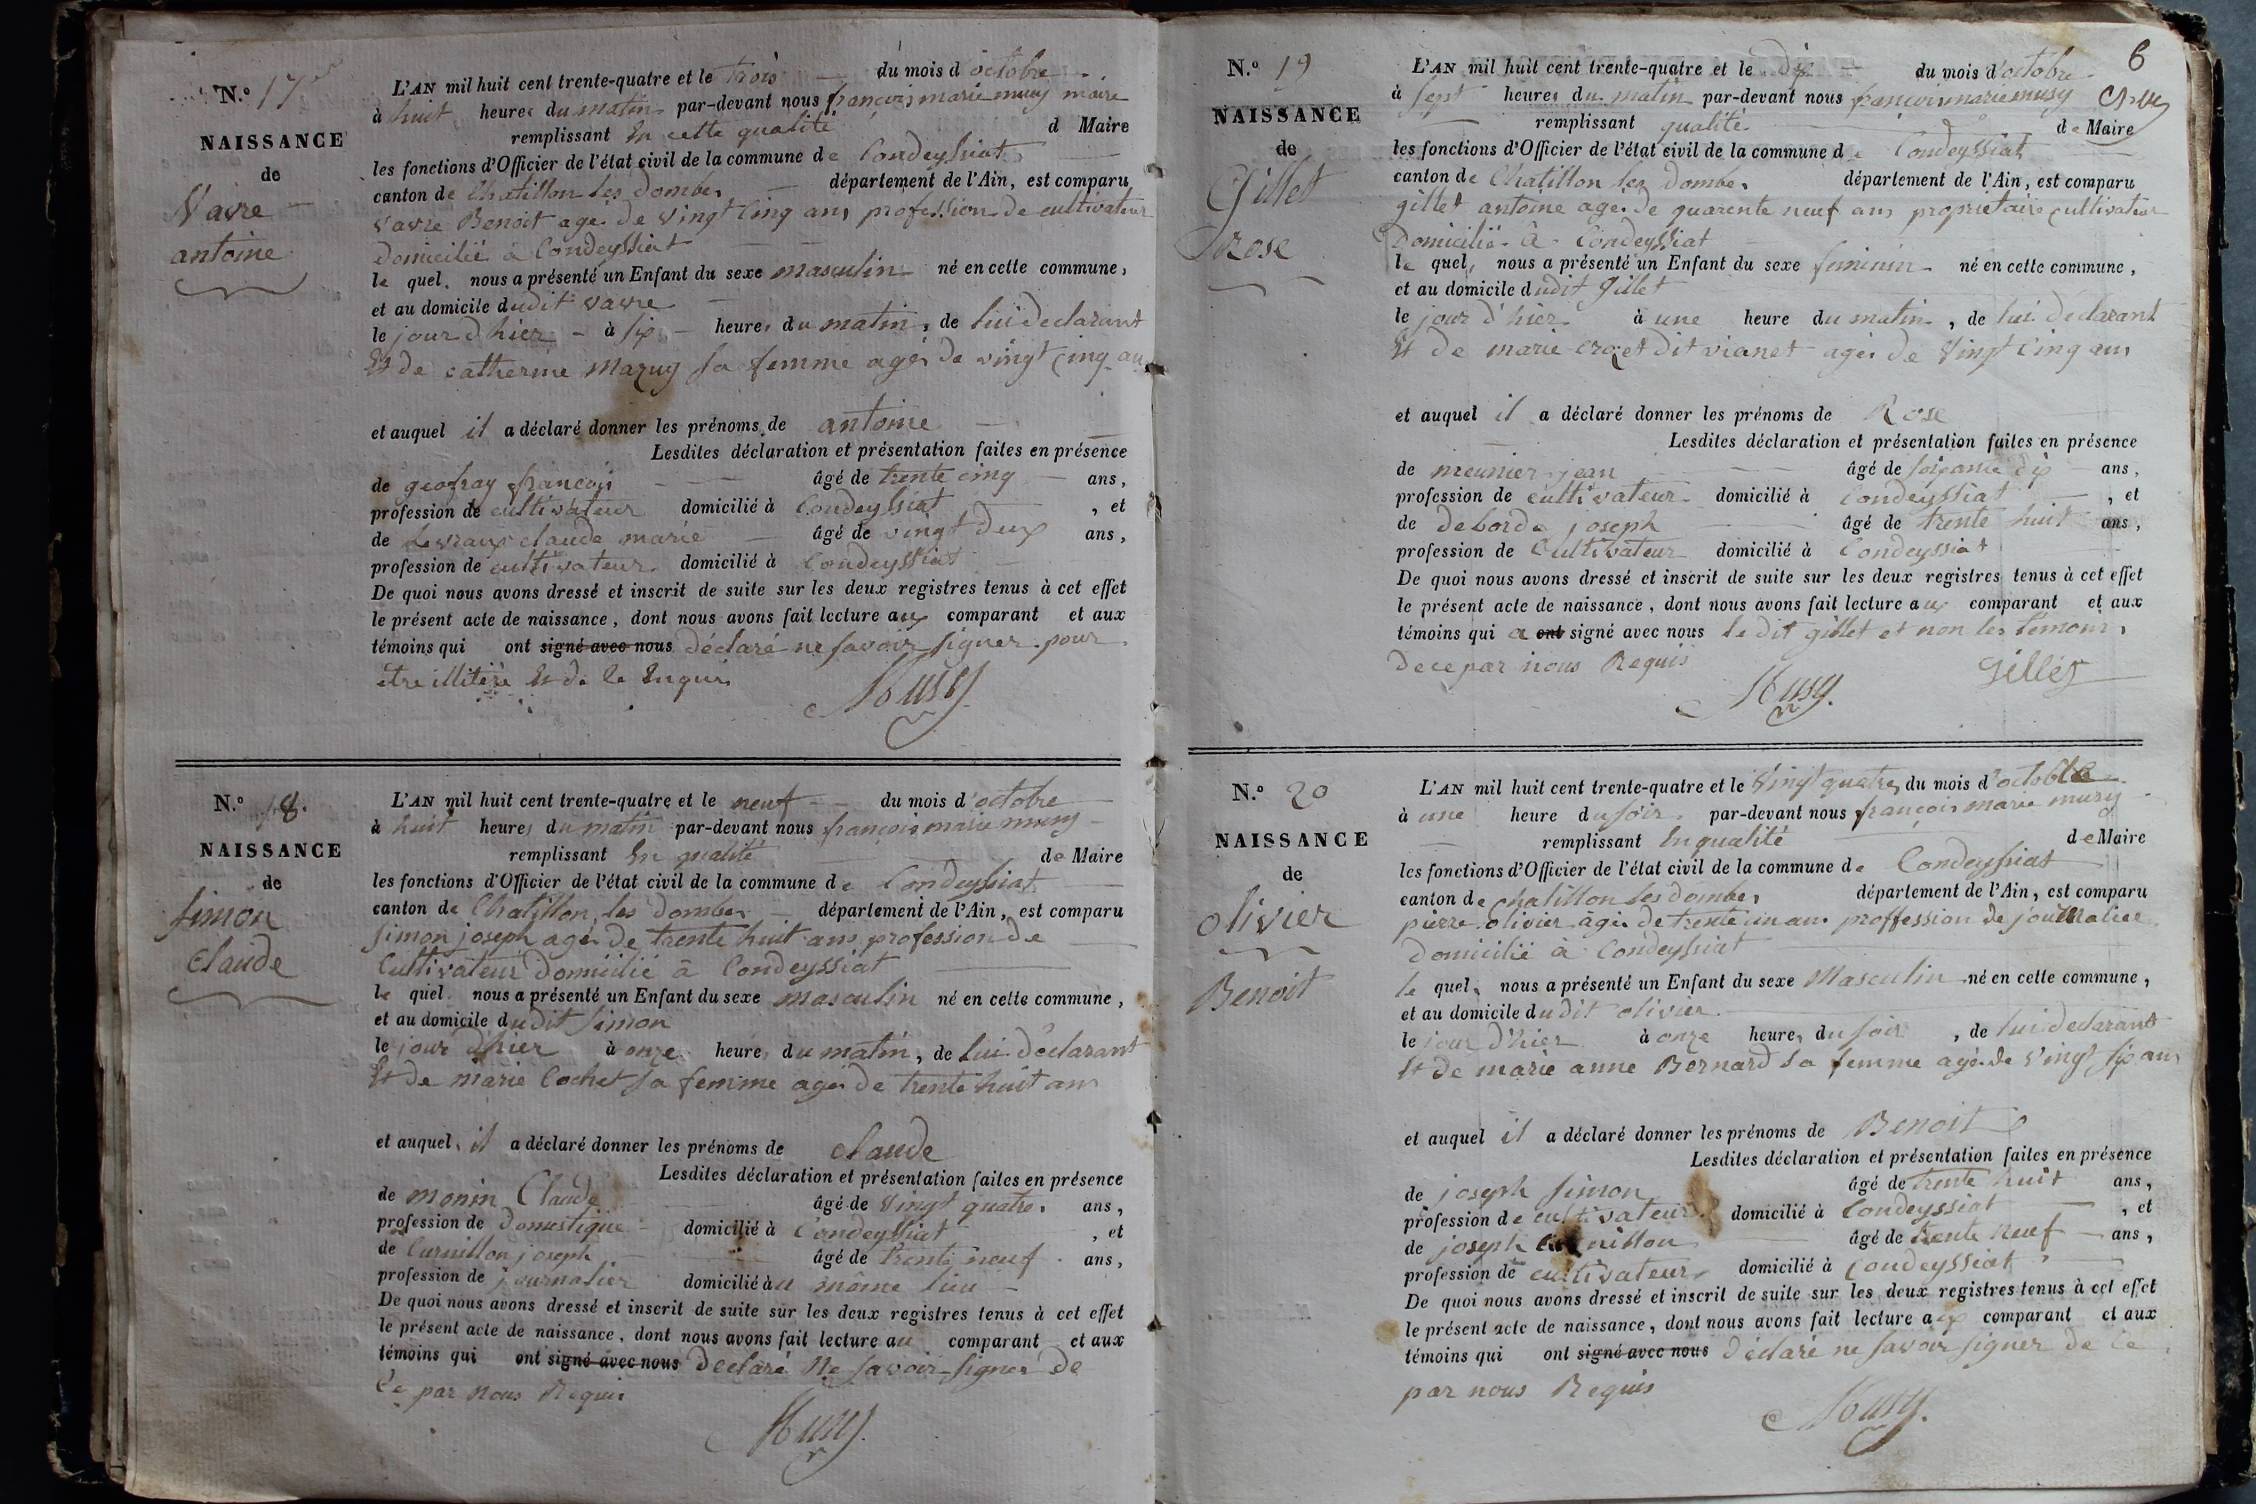 N.° 17
NAISSANCE
de
Vavre
antoine
L'AN mil huit cent trente-quatre et le trois du mois d octobre
à huit heures du matin par-devant nous françois marie musy maire
remplissant En cette qualité d Maire
les fonctions d'Officier de l'état civil de la commune de Condeyssiat
canton de Chatillon les dombes département de l'Ain, est comparu
vavre Benoit age de vingt cinq ans profession de cultivateur
Domicilié à Condeyssiat
le quel, nous a présenté un Enfant du sexe masculin né en cette commune,
et au domicile dudit vavre
le jour d'hier à six heures du matin, de lui declarant
Et de catherine mazuy sa femme agée de vingt cinq ans
et auquel il a déclaré donner les prénoms de antoine
Lesdites déclaration et présentation faites en présence
de geofray françois âgé de trente cinq ans,
profession de cultivateur domicilié à Condeyssiat, et
de Levraux claude marie âgé de vingt deux ans,
profession de cultivateur domicilié à Condeyssiat
De quoi nous avons dressé et inscrit de suite sur les deux registres tenus à cet effet
le présent acte de naissance, dont nous avons fait lecture aux comparant et aux
témoins qui ont signé avec nous déclaré ne savoir signer pour
être illitéré Et de le Enquis
Musy
N.° 18.
NAISSANCE
de
simon
claude
L'AN mil huit cent trente-quatre et le neuf du mois d'octobre
à huit heures du matin par-devant nous françois marie musy
remplissant En qualité de Maire
les fonctions d'Officier de l'état civil de la commune de Condeyssiat
canton de Chatillon les dombes département de l'Ain, est comparu
simon joseph agé de trente huit ans profession de
Cultivateur Domicilié à Condeyssiat
le quel nous a présenté un Enfant du sexe masculin né en cette commune,
et au domicile dudit simon
le jour d'hier à onze heures du matin, de lui déclarant
Et de marie Cochet sa femme agée de trente huit ans
et auquel il a déclaré donner les prénoms de claude
Lesdites déclaration et présentation faites en présence
de monin Claude âgé de vingt quatre ans,
profession de Domestique domicilié à Condeyssiat, et
de Curnillon joseph âgé de trente neuf ans,
profession de journalier domicilié au même lieu
De quoi nous avons dressé et inscrit de suite sur les deux registres tenus à cet effet
le présent acte de naissance, dont nous avons fait lecture au comparant et aux
témoins qui ont signé avec nous déclaré ne savoir signer de
Ce par nous Requis
Musy
6
N.° 19
NAISSANCE
de
Gillet
rose
L'AN mil huit cent trente-quatre et le dix du mois d'octobre
à sept heures du matin par-devant nous françois marie musy
remplissant qualité de Maire
les fonctions d'Officier de l'état civil de la commune de Condeyssiat
canton de Chatillon les Dombes département de l'Ain, est comparu
gillet antoine age de quarente neuf ans proprietaire cultivateur
Domicilié à Condeyssiat
le quel, nous a présenté un Enfant du sexe feminin né en cette commune,
et au domicile dudit Gillet
le jour d'hier à une heure du matin, de lui declarant
Et de marie crozet dit vianet agée de vingt cinq ans
et auquel il a déclaré donner les prénoms de Rose
Lesdites déclaration et présentation faites en présence
de meunier jean âgé de soixante dix ans,
profession de cultivateur domicilié à Condeyssiat, et
de deborde joseph âgé de trente huit ans,
profession de Cultivateur domicilié à Condeyssiat
De quoi nous avons dressé et inscrit de suite sur les deux registres tenus à cet effet
le présent acte de naissance, dont nous avons fait lecture aux comparant et aux
témoins qui a ont signé avec nous le dit gillet et non les temoins
de ce par nous Requis
Gillet
Musy
N.° 20
NAISSANCE
de
olivier
Benoit
L'AN mil huit cent trente-quatre et le vingt quatre du mois d'octobre
à une heure du soir par-devant nous françois marie musy
remplissant En qualité de Maire
les fonctions d'Officier de l'état civil de la commune de Condeyssiat
canton de chatillon les dombes département de l'Ain, est comparu
pierre olivier âgé de trente un ans proffession de journalier
Domicilié à Condeyssiat
le quel, nous a présenté un Enfant du sexe Masculin né en cette commune,
et au domicile dudit olivier
le jour d'hier à onze heures du soir, de lui declarant
Et de marie anne Bernard sa femme agée de vingt six ans
et auquel il a déclaré donner les prénoms de Benoit
Lesdites déclaration et présentation faites en présence
de joseph simon âgé de trente huit ans,
profession de cultivateur domicilié à Condeyssiat, et
de joseph âgé de trente neuf ans,
profession de cultivateur domicilié à Condeyssiat
De quoi nous avons dressé et inscrit de suite sur les deux registres tenus à cet effet
le présent acte de naissance, dont nous avons fait lecture aux comparant et aux
témoins qui ont signé avec nous déclaré ne savoir signer de ce
par nous Requis
Musy